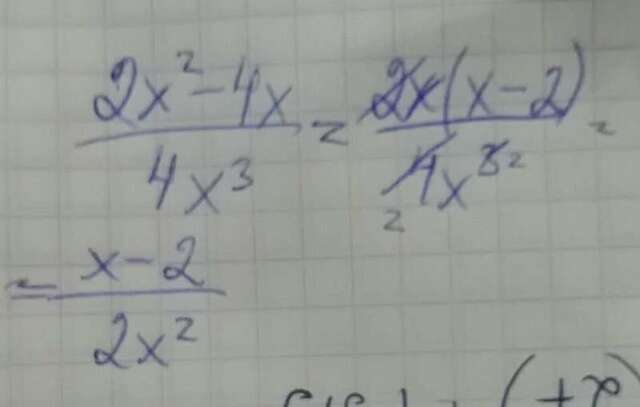 (2x² - 4x)/(4x³) = (2x(x - 2))/(4x³) =
= (x - 2)/(2x²)